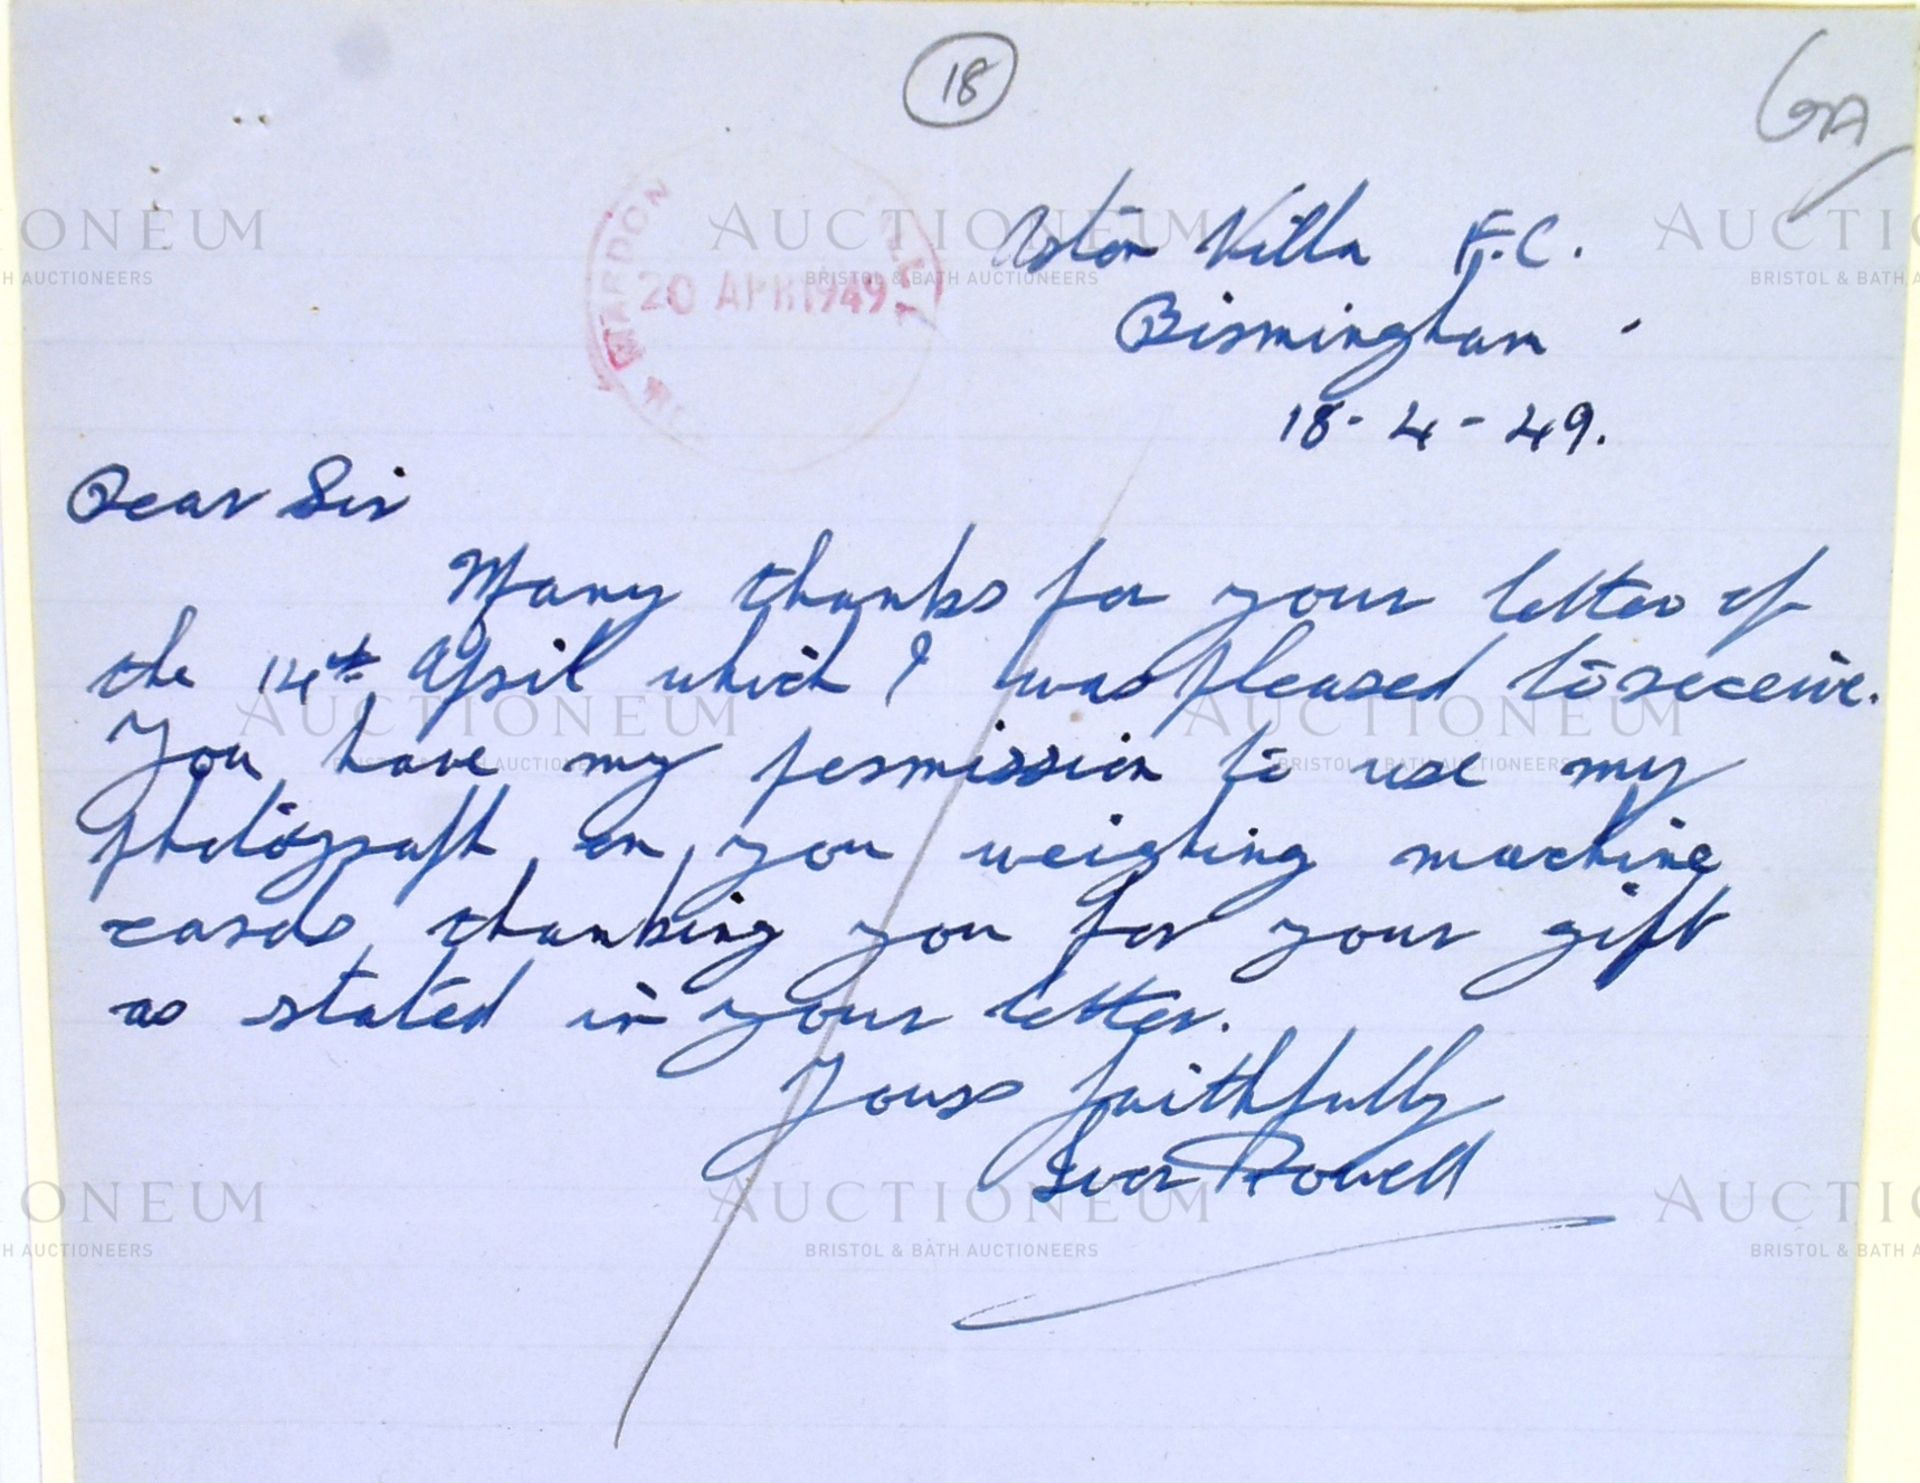 18
Aston Villa F.C.
MARDON
20 APR 1949
Birmingham.
18-4-49.
Dear Sir
Many thanks for your letter of
the 14th April which I was pleased to receive.
You have my permission to use my
photograph on you weighing machine
cards, thanking you for your gift
as stated in your letter.
Yours faithfully
Ivor Powell
AUCTIONEUM
BRISTOL & BATH AUCTIONEERS